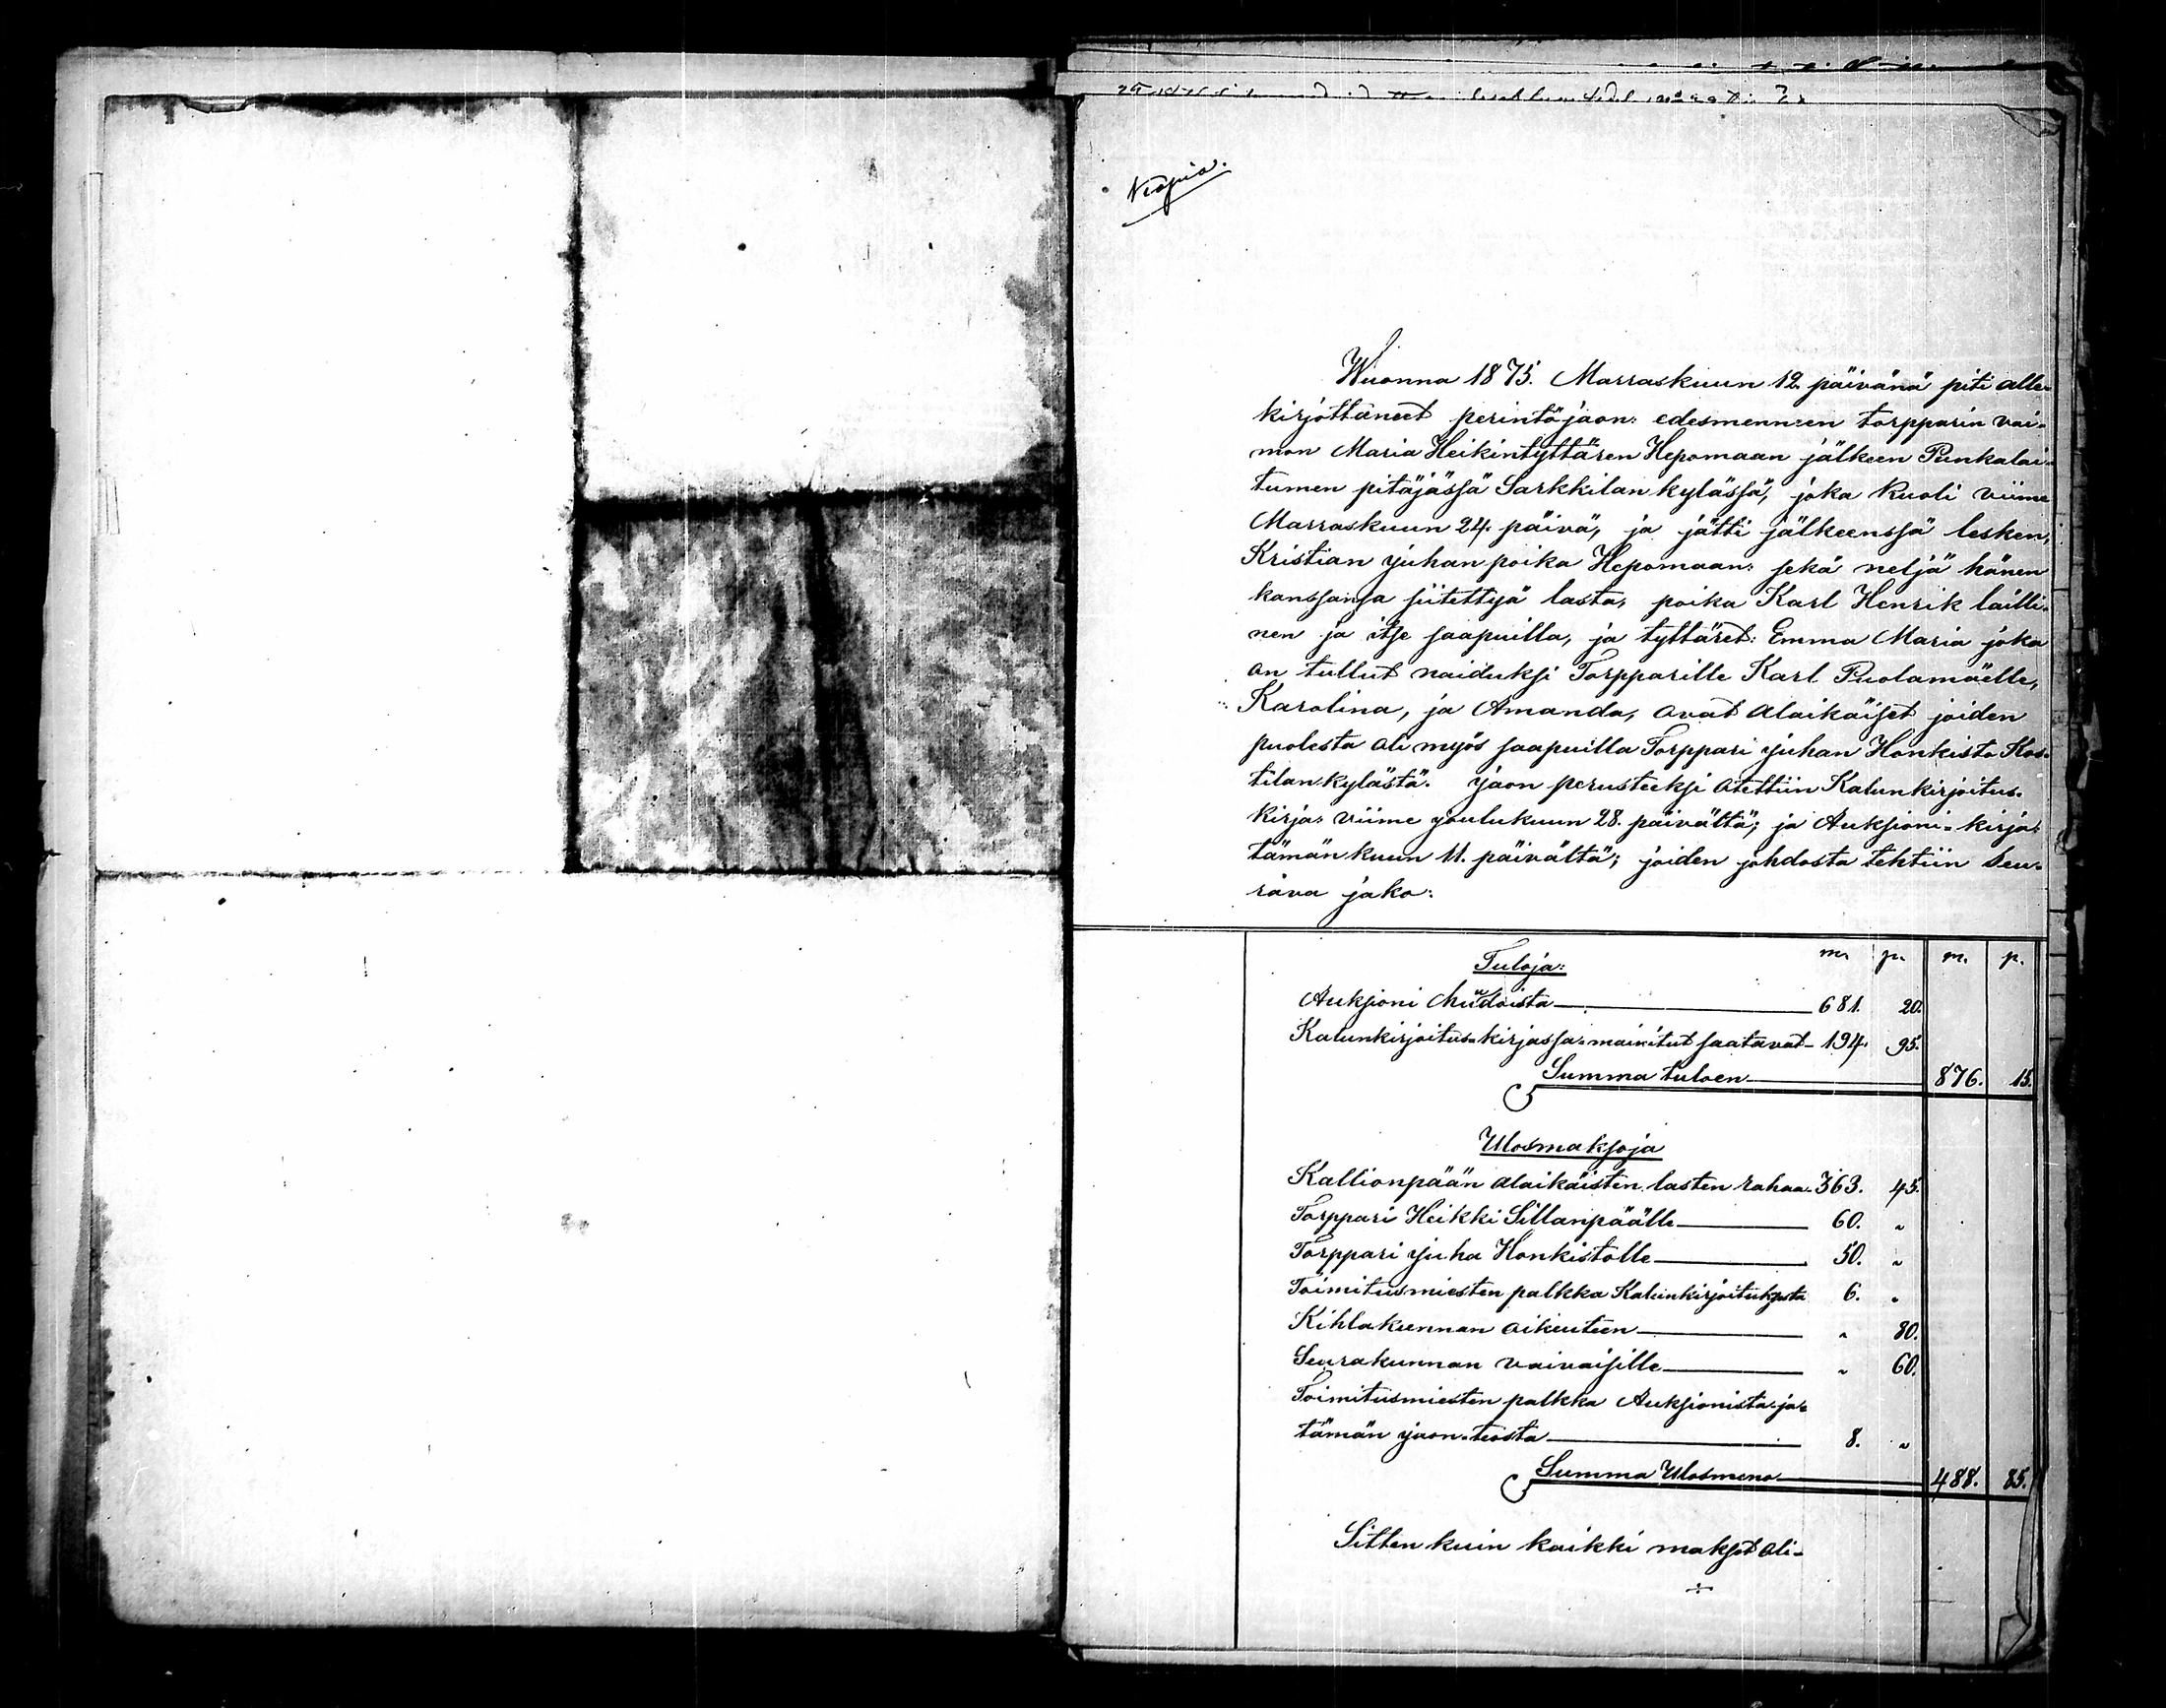 Kopia.
Wuonna 1875. Marraskuun 12 päivänä piti alle-
kirjottaneet perintöjaon: edesmennen torpparin vai-
mon Maria Heikintyttären Hepomaan jälkeen Punkalai-
tumen pitäjässä Sarkkilan kylässä, joka kuoli viime
Marraskuun 24. päivä, ja jätti jälkeenssä lesken,
Kristian Juhan poika Hepomaan: sekä neljä hänen
kanssansa siitettyä lasta, poika Karl Henrik lailli-
nen ja itse saapuilla, ja tyttäret: Emma Maria joka
on tullut naiduksi Torpparille Karl Puolamäelle,
Karolina, ja Amanda, ovat alaikäiset joiden
puolesta oli myös saapuilla Torppari Juhan Honkisto Kos-
tilankylästä. Jaon perusteeksi otettiin Kalunkirjoitus-
kirja: viime Joulukuun 28. päivältä; ja Auksioni-kirja:
tämän kuun 11. päivältä; joiden johdosta tehtiin Seu-
rava jako:
Tuloja: m. p. m. p.
Auksioni Muudoista 681. 20.
Kalunkirjoitus-kirjassa-mainitut saatavat 194. 95.
Summa tuloen 876. 15.
Ulosmaksoja
Kallionpään alaikäisten lasten rahaa 363. 45.
Torppari Heikki Sillanpäälle 60. "
Torppari Juha Honkistolle 50. "
Toimitusmiesten palkka Kalunkirjoituksesta 6. "
Kihlakunnan oikeuteen " 80.
Seurakunnan vaivaisille " 60.
Toimitusmiesten palkka Auksionista-ja-
tämän jaon-teosta 8. "
Summa Ulosmeno 488. 85.
Sitten kuin kaikki maksot oli-